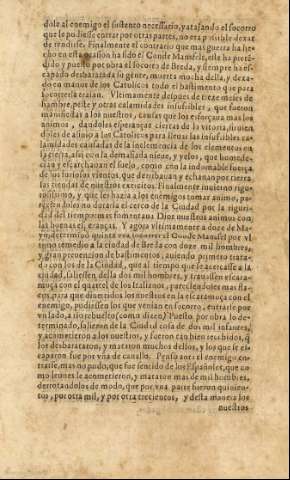 dole al enemigo el sustento necessario, y atajando el socorro
que le podiesse entrar por otras partes, no era possible dexar
de rendirse. Finalmente el contrario que mas guerra ha he-
cho en esta ocasion ha sido el Conde Mansfelt, este ha preté-
dido y puesto por obra el socorro de Breda, y siempre ha es-
capado desbaratada su géte, muerta mucha della, y dexan-
do en manos de los Catolicos todo el bastimento que para
socorrerla traian. Vltimamente despues de treze meses de
hambre, peste y otras calamidades insufribles, que fueron
manifiestas a los nuestros, causas que los esforçara mas los
animos, dandoles esperanças ciertas de la vitoria, siruien
doles de aliuio a los Catolicos para lleuar las insufribles ca-
lamidades causadas de la inclemencia de los elementos en
la tierra, assi con la demasiada nieue, y yelos, que humede-
cian y escarchauan el suelo, como con la indomable fuerça
de los furiosos vientos, que derribauan y echauan por tierra
las tiendas de nuestros exercitos. Finalmente inuierno rigu-
rosissimo, y que les hazia a los enemigos tomar animo, pa-
reciendoles no duraria el cerco de la Ciudad por la riguri-
dad del tiempo, mas fomentaua Dios nuestros animos con
las buenas esperanças. Y agora vltimamente a doze de Ma-
yo, determinó quinta vez socorrer el Conde Mansfel por vl
timo remedio a la ciudad de Breda con doze mil hombres,
y gran preuencion de bastimentos, auiendo primero trata-
do con los de la Ciudad, que al tiempo que se acercasse a la
ciudad, saliessen della dos mil hombres, y trauassen escara-
muça con el quartel de los Italianos, pareciendoles mas fla-
co, para que diuertidos los nuestros en la escaramuça con el
enemigo, pudiessen los que venian en socorro, entrarse por
vn lado, a rio rebuelto (como dizen) Puesto por obra lo de-
terminado, salieron de la Ciudad cosa de dos mil infantes,
y acometieron a los nuestros, y fueron tan bien resistidos, q̃
los desbarataron, y mataron muchos dellos, y los que se es-
caparon fue por vña de cauallo. Penso aora el enemigo en-
trarse, mas no pudo, que fue sentido de los Españoles, que co
mo leones le acometieron, y mataron mas de mil hombres,
derrotandolos de modo, que por vna parte fueron quinien-
tos, por otra mil, y por otra trecientos, y desta manera los
nuestros